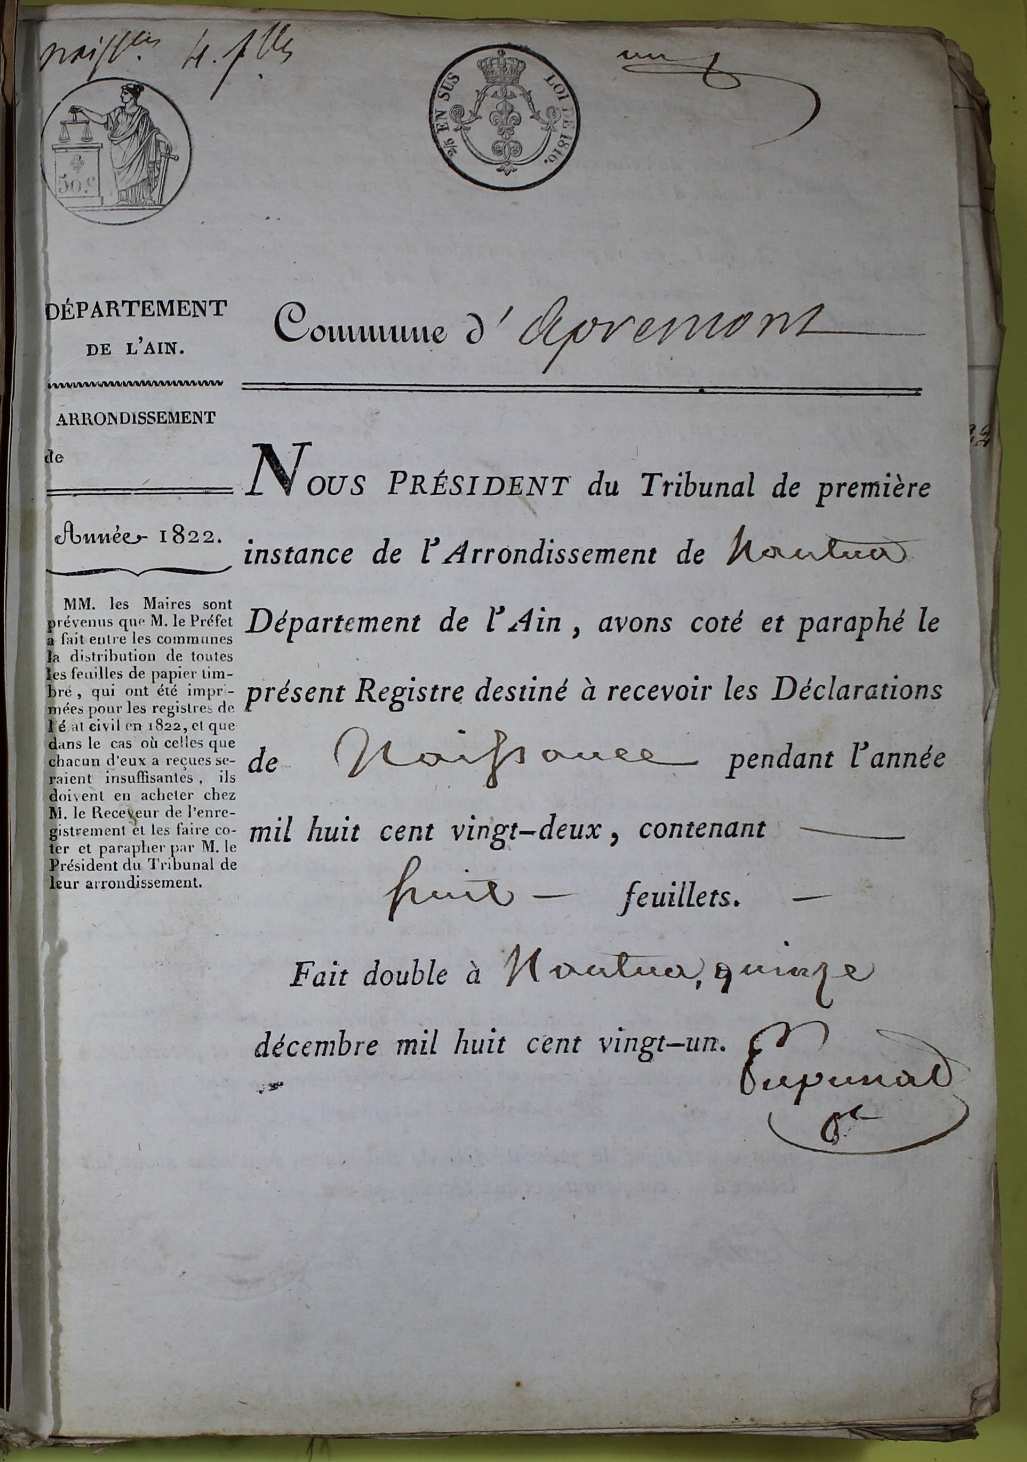 4. flles
un
50. C
2/5 EN SUS LOI DE 1816.
DÉPARTEMENT
DE L'AIN.
ARRONDISSEMENT
de
Année 1822.
MM. les Maires sont
prévenus que M. le Préfet
a fait entre les communes
la distribution de toutes
les feuilles de papier tim-
bré, qui ont été impri-
mées pour les registres de
l'é at civil en 1822, et que
dans le cas où celles que
chacun d'eux a reçues se-
raient insuffisantes, ils
doivent en acheter chez
M. le Receveur de l'enre-
gistrement et les faire co-
ter et parapher par M. le
Président du Tribunal de
leur arrondissement.
Commune d'apremont
NOUS PRÉSIDENT du Tribunal de première
instance de l'Arrondissement de Nantua
Département de l'Ain, avons coté et paraphé le
présent Registre destiné à recevoir les Déclarations
de Naissance pendant l'année
mil huit cent vingt-deux, contenant —
huit — feuillets. —
Fait double à Nantua, quinze
décembre mil huit cent vingt-un.